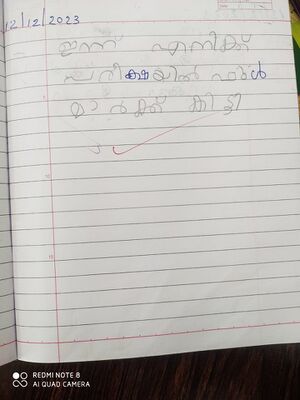 12/12/2023
ഇന്ന് എനിക്ക്
പരീക്ഷയിൽ ഫുൾ
മാർക്ക് കിട്ടി
REDMI NOTE 8
AI QUAD CAMERA